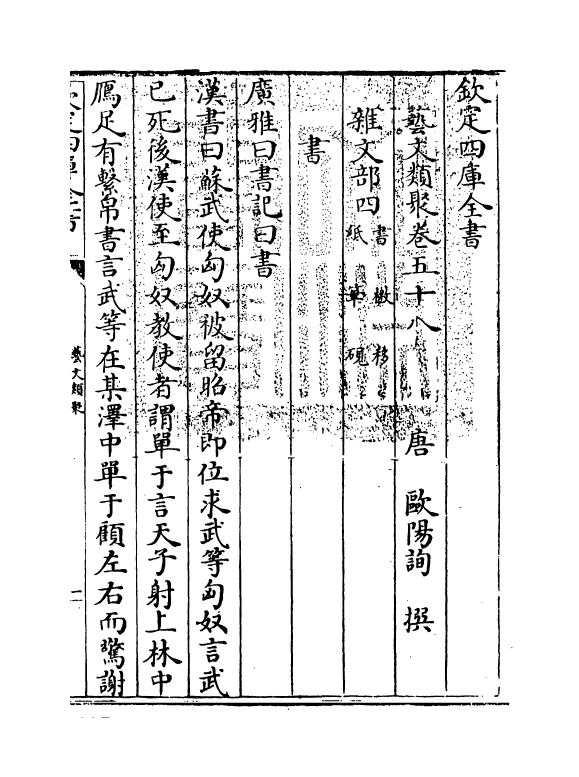 欽定四庫全書
藝文類聚卷五十八
唐 歐陽詢 撰
雜文部四 書 檄 移 紙 筆 硯
書
廣雅曰書記曰書
漢書曰蘇武使匈奴被留昭帝即位求武等匈奴言武
已死後漢使至匈奴教使者謂單于言天子射上林中
鴈足有繫帛書言武等在某澤中單于顧左右而驚謝
欽定四庫全書
藝文類聚